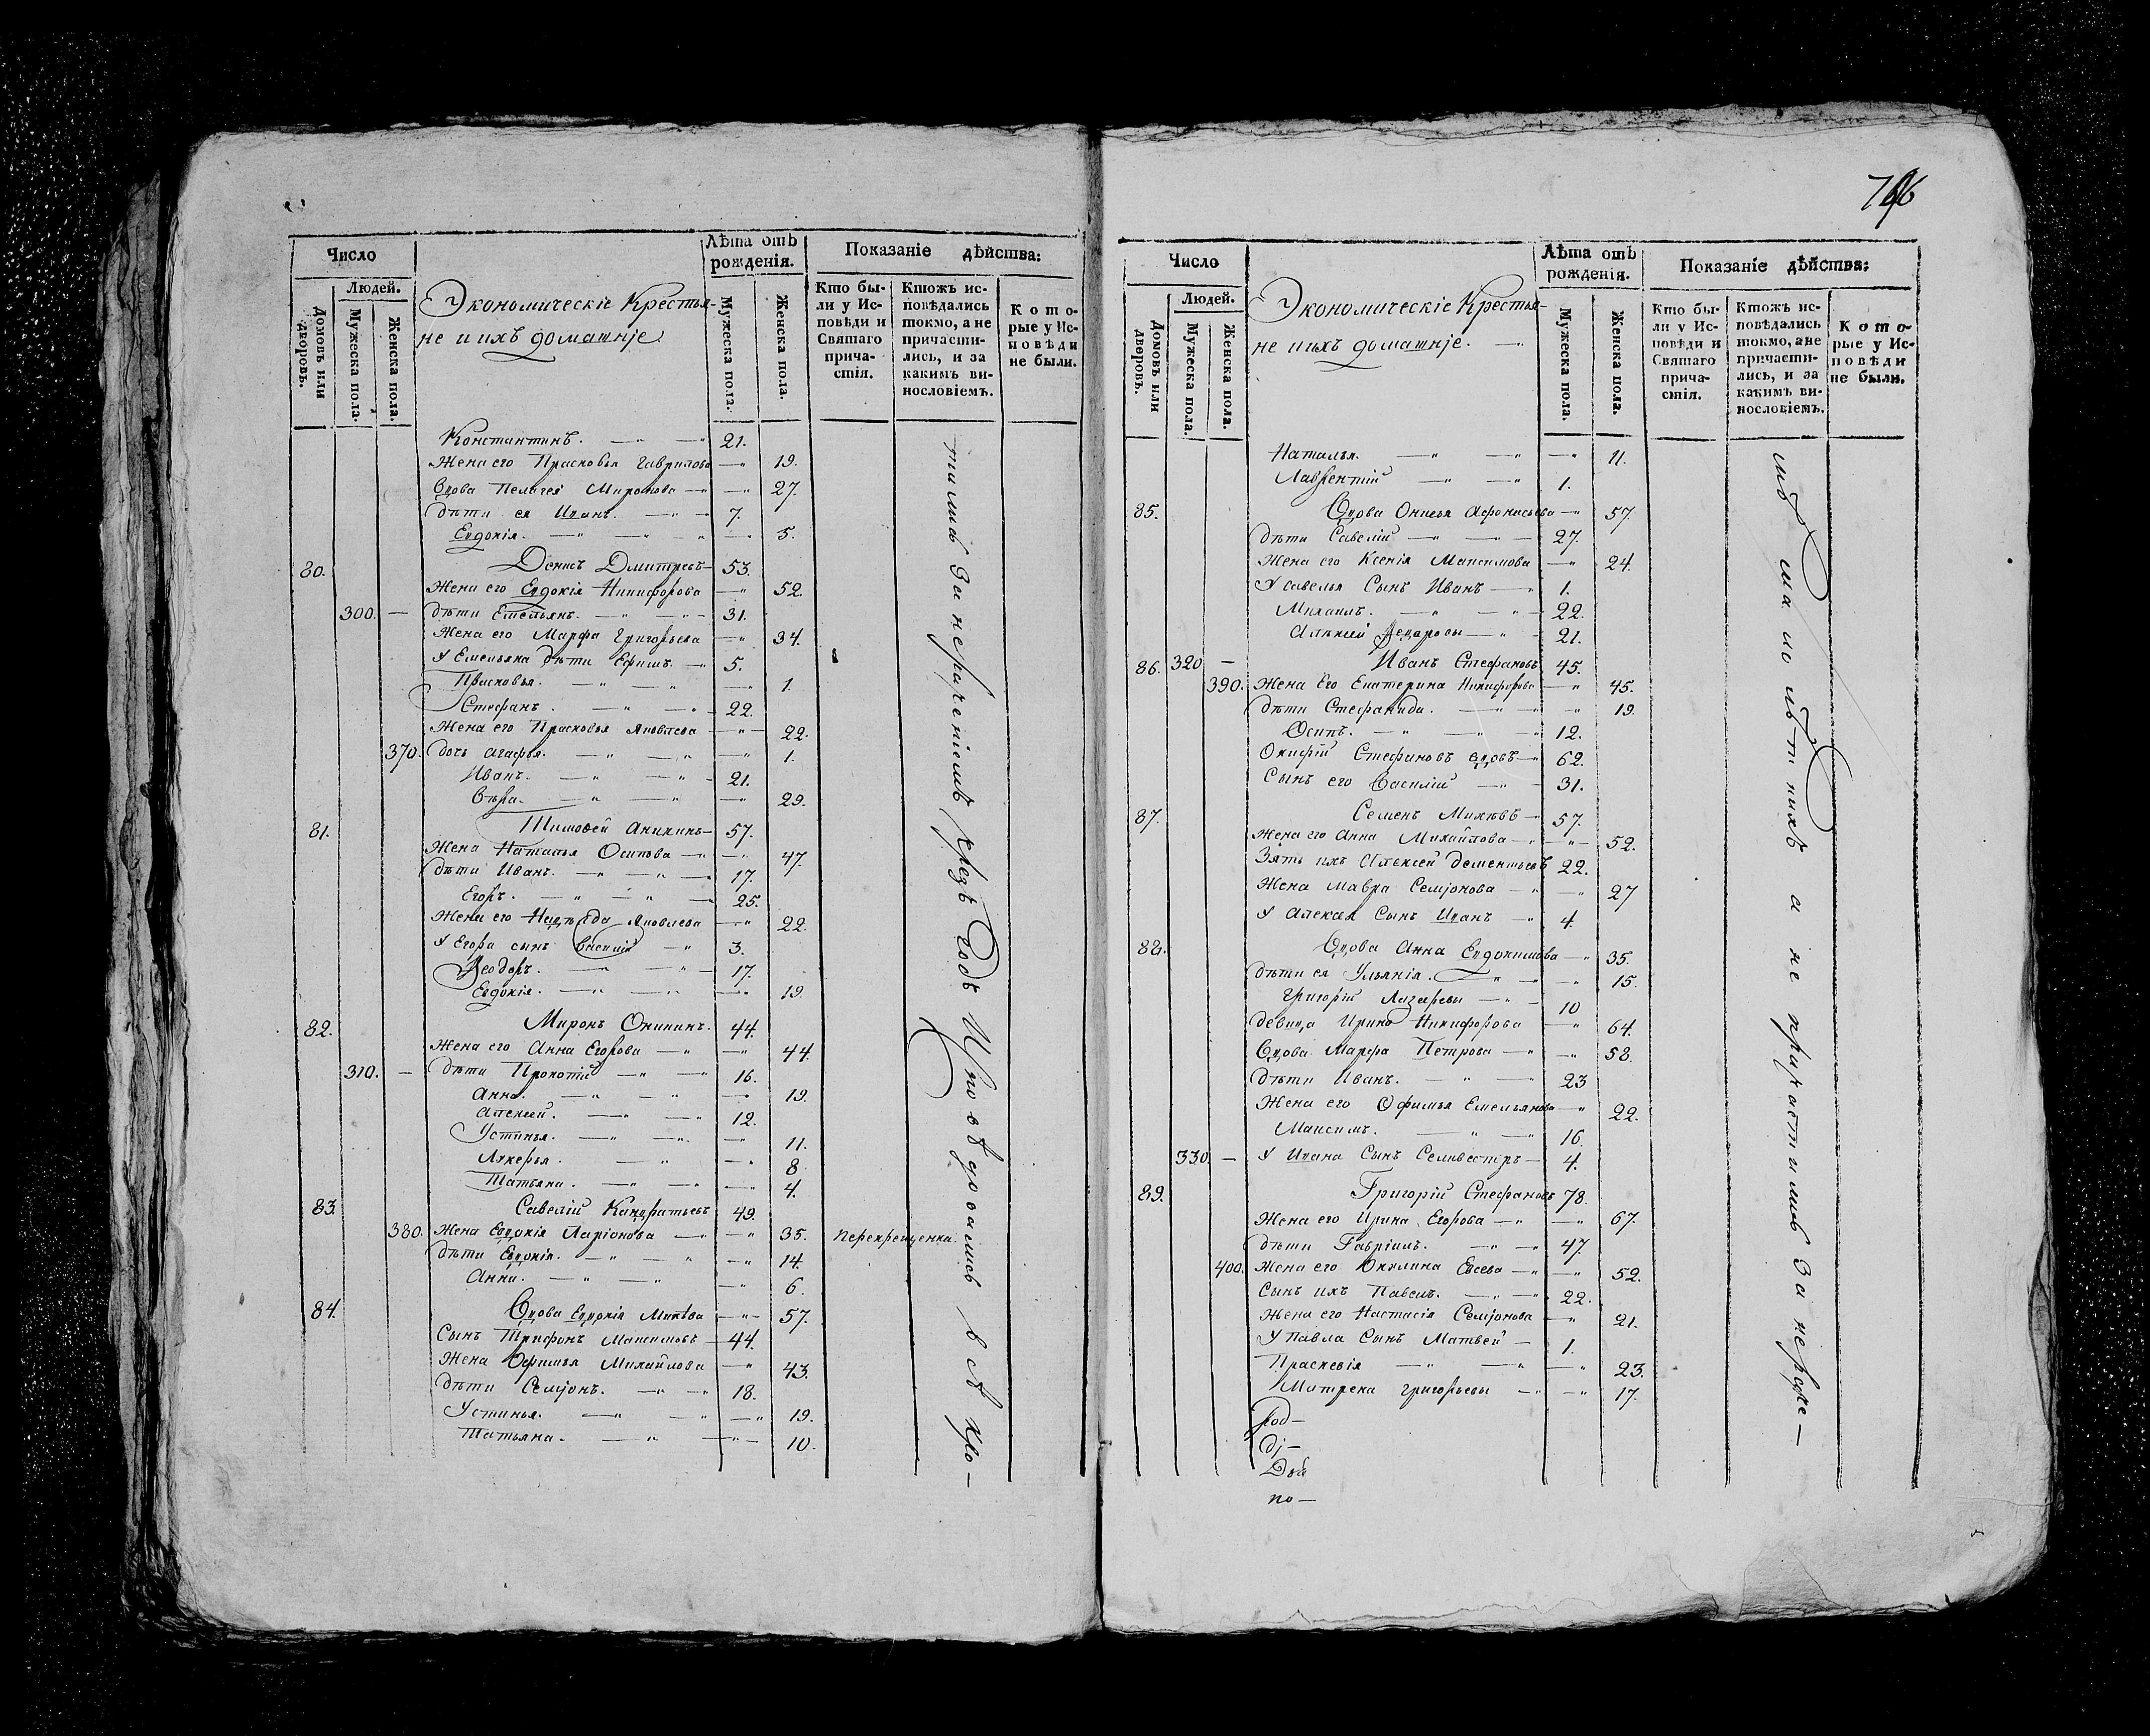 Число
Людей.
Домовъ или дворовъ.
Мужеска пола.
Женска пола.
Экономическіе Крестья-
не и ихъ домашніе
Лѣта отъ рожденія.
Мужеска пола.
Женска пола.
Показаніе дѣйства:
Кто бы-
ли у Ис-
повѣди и
Святаго
прича-
стія.
Ктожъ ис-
повѣдались
токмо, а не
причасти-
лись, и за
какимъ ви-
нословіемъ.
Кото-
рые у Ис-
повѣди
не были.
Константинъ. 21.
Жена его Прасковья Гаврилова 19.
Вдова Пелагея Миронова 27.
дѣти ея Иванъ. 7.
Евдокія. 5.
80. Денисъ Дмитревъ 53.
Жена его Евдокія Никифорова 52.
300. дѣти Емельянъ. 31.
Жена его Марфа Григорьева 34.
У Емельяна дѣти Ефимъ. 5.
Прасковья. 1.
Стефанъ. 22.
Жена его Прасковья Яковлева 22.
370. дочь Агафья. 1.
Иванъ. 21.
Вѣра. 29.
81. Тимофей Аникинъ 57.
Жена Наталья Осипова 47.
дѣти Иванъ. 17.
Егоръ. 25.
Жена его Надѣжда Яковлева 22.
У Егора сынъ Василій 3.
Ѳеодоръ. 17.
Евдокія. 19.
82. Миронъ Оникинъ. 44.
Жена его Анна Егорова 44.
310. дѣти Прокопій 16.
Анна. 19.
Алексей. 12.
Устинья. 11.
Лукерья. 8.
Татьяна. 4.
83. Савелій Кандратьевъ 49.
380. Жена Евдокія Ларіонова 35. перекрещенка.
дѣти Евдокія. 14.
Анна. 6.
84. Вдова Евдокія Михѣва 57.
Сынъ Трифонъ Максимовъ 44.
Жена Офимья Михайлова 43.
дѣти Семіонъ. 18.
Устинья. 19.
Татьяна. 10.
тились За нераченіемъ презъ Годъ Исповѣдовались всѣ кро-
Число
Людей.
Домовъ или дворовъ.
Мужеска пола.
Женска пола.
Экономическіе Крестья-
не и ихъ домашніе.
Лѣта отъ рожденія.
Мужеска пола.
Женска пола.
Показаніе дѣйства:
Кто бы-
ли у Ис-
повѣди и
Святаго
прича-
стія.
Ктожъ ис-
повѣдались
токмо, а не
причасти-
лись, и за
какимъ ви-
нословіемъ.
Кото-
рые у Ис-
повѣди
не были.
Наталья. 11.
Лаврентій 1.
85. Вдова Онисья Афонасьева 57.
дѣти Савелій 27.
Жена его Ксенія Максимова 24.
У савелья Сынъ Иванъ 1.
Михаилъ. 22.
Алѣксей Ѳедоровы 21.
86. 320 Иванъ Стефановъ 45.
390. Жена Его Екатерина Никифорова 45.
дѣти Стефанида. 19.
Осипъ. 12.
Стефановъ вдовъ 62.
Сынъ его Василій 31.
87. Семенъ Михѣвъ 57.
Жена его Анна Михайлова 52.
Зять ихъ Алексей Дементьевъ 22.
Жена Мавра Семіонова 27
У Алексея Сынъ Иванъ 4.
88. Вдова Анна Евдокимова 35.
дѣти ея Ульянія. 15.
Григорій Лазаревы 10
девица Ирина Никифорова 64.
Вдова Марфа Петрова 58.
дѣти Иванъ. 23
Жена его Офимья Емельянова 22.
Максимъ. 16.
330. У Ивана Сынъ Селивестръ 4.
89. Григорій Стефановъ 78.
Жена его Ирина Егорова 67.
дѣти Гавріилъ. 47.
400. Жена его Окулина Евсева 52.
Сынъ ихъ Павелъ. 22.
Жена его Настасія Семіонова 21.
У Павла Сынъ Матвей 1.
Праскевія 23.
Митрена Григорьевы 17.
мѣ малолѣтнихъ а не причастились За нераче-